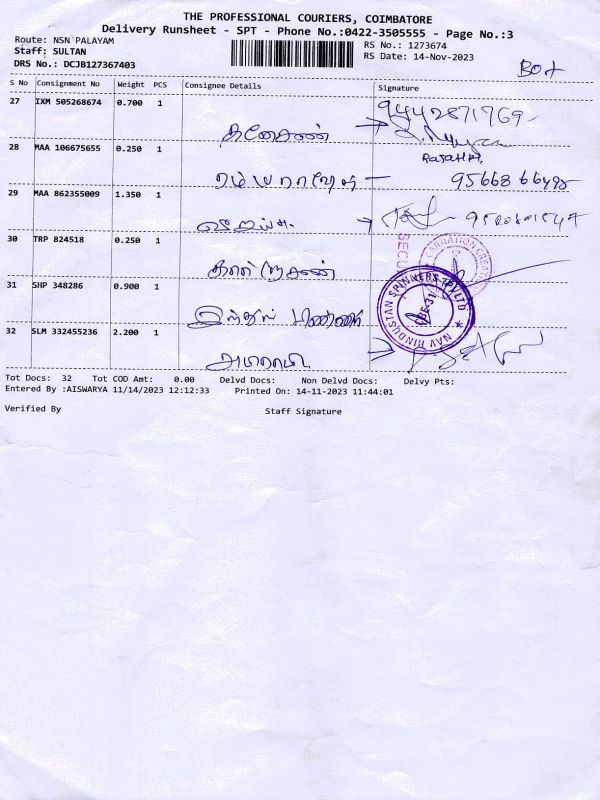 THE PROFESSIONAL COURIERS, COIMBATORE
Delivery Runsheet - SPT - Phone No.:0422-3505555 - Page No.:3
Route: NSN PALAYAM
RS No.: 1273674
Staff: SULTAN
RS Date: 14-Nov-2023
DRS No.: DCJB127367403
S No Consignment No Weight PCS Consignee Details Signature
27 IXM 505268674 0.700 1
9442871769
கணேசன்
28 MAA 106675655 0.250 1
29 MAA 862355009 1.350 1
30 TRP 824518 0.250 1
31 SHP 348286 0.900 1
NAV HINDUSTAN SPINNERS (P) LTD
32 SLM 332455236 2.200 1
அபிராமி
Tot Docs: 32 Tot COD Amt: 0.00 Delvd Docs: Non Delvd Docs: Delvy Pts:
Entered By :AISWARYA 11/14/2023 12:12:33 Printed On: 14-11-2023 11:44:01
Verified By Staff Signature